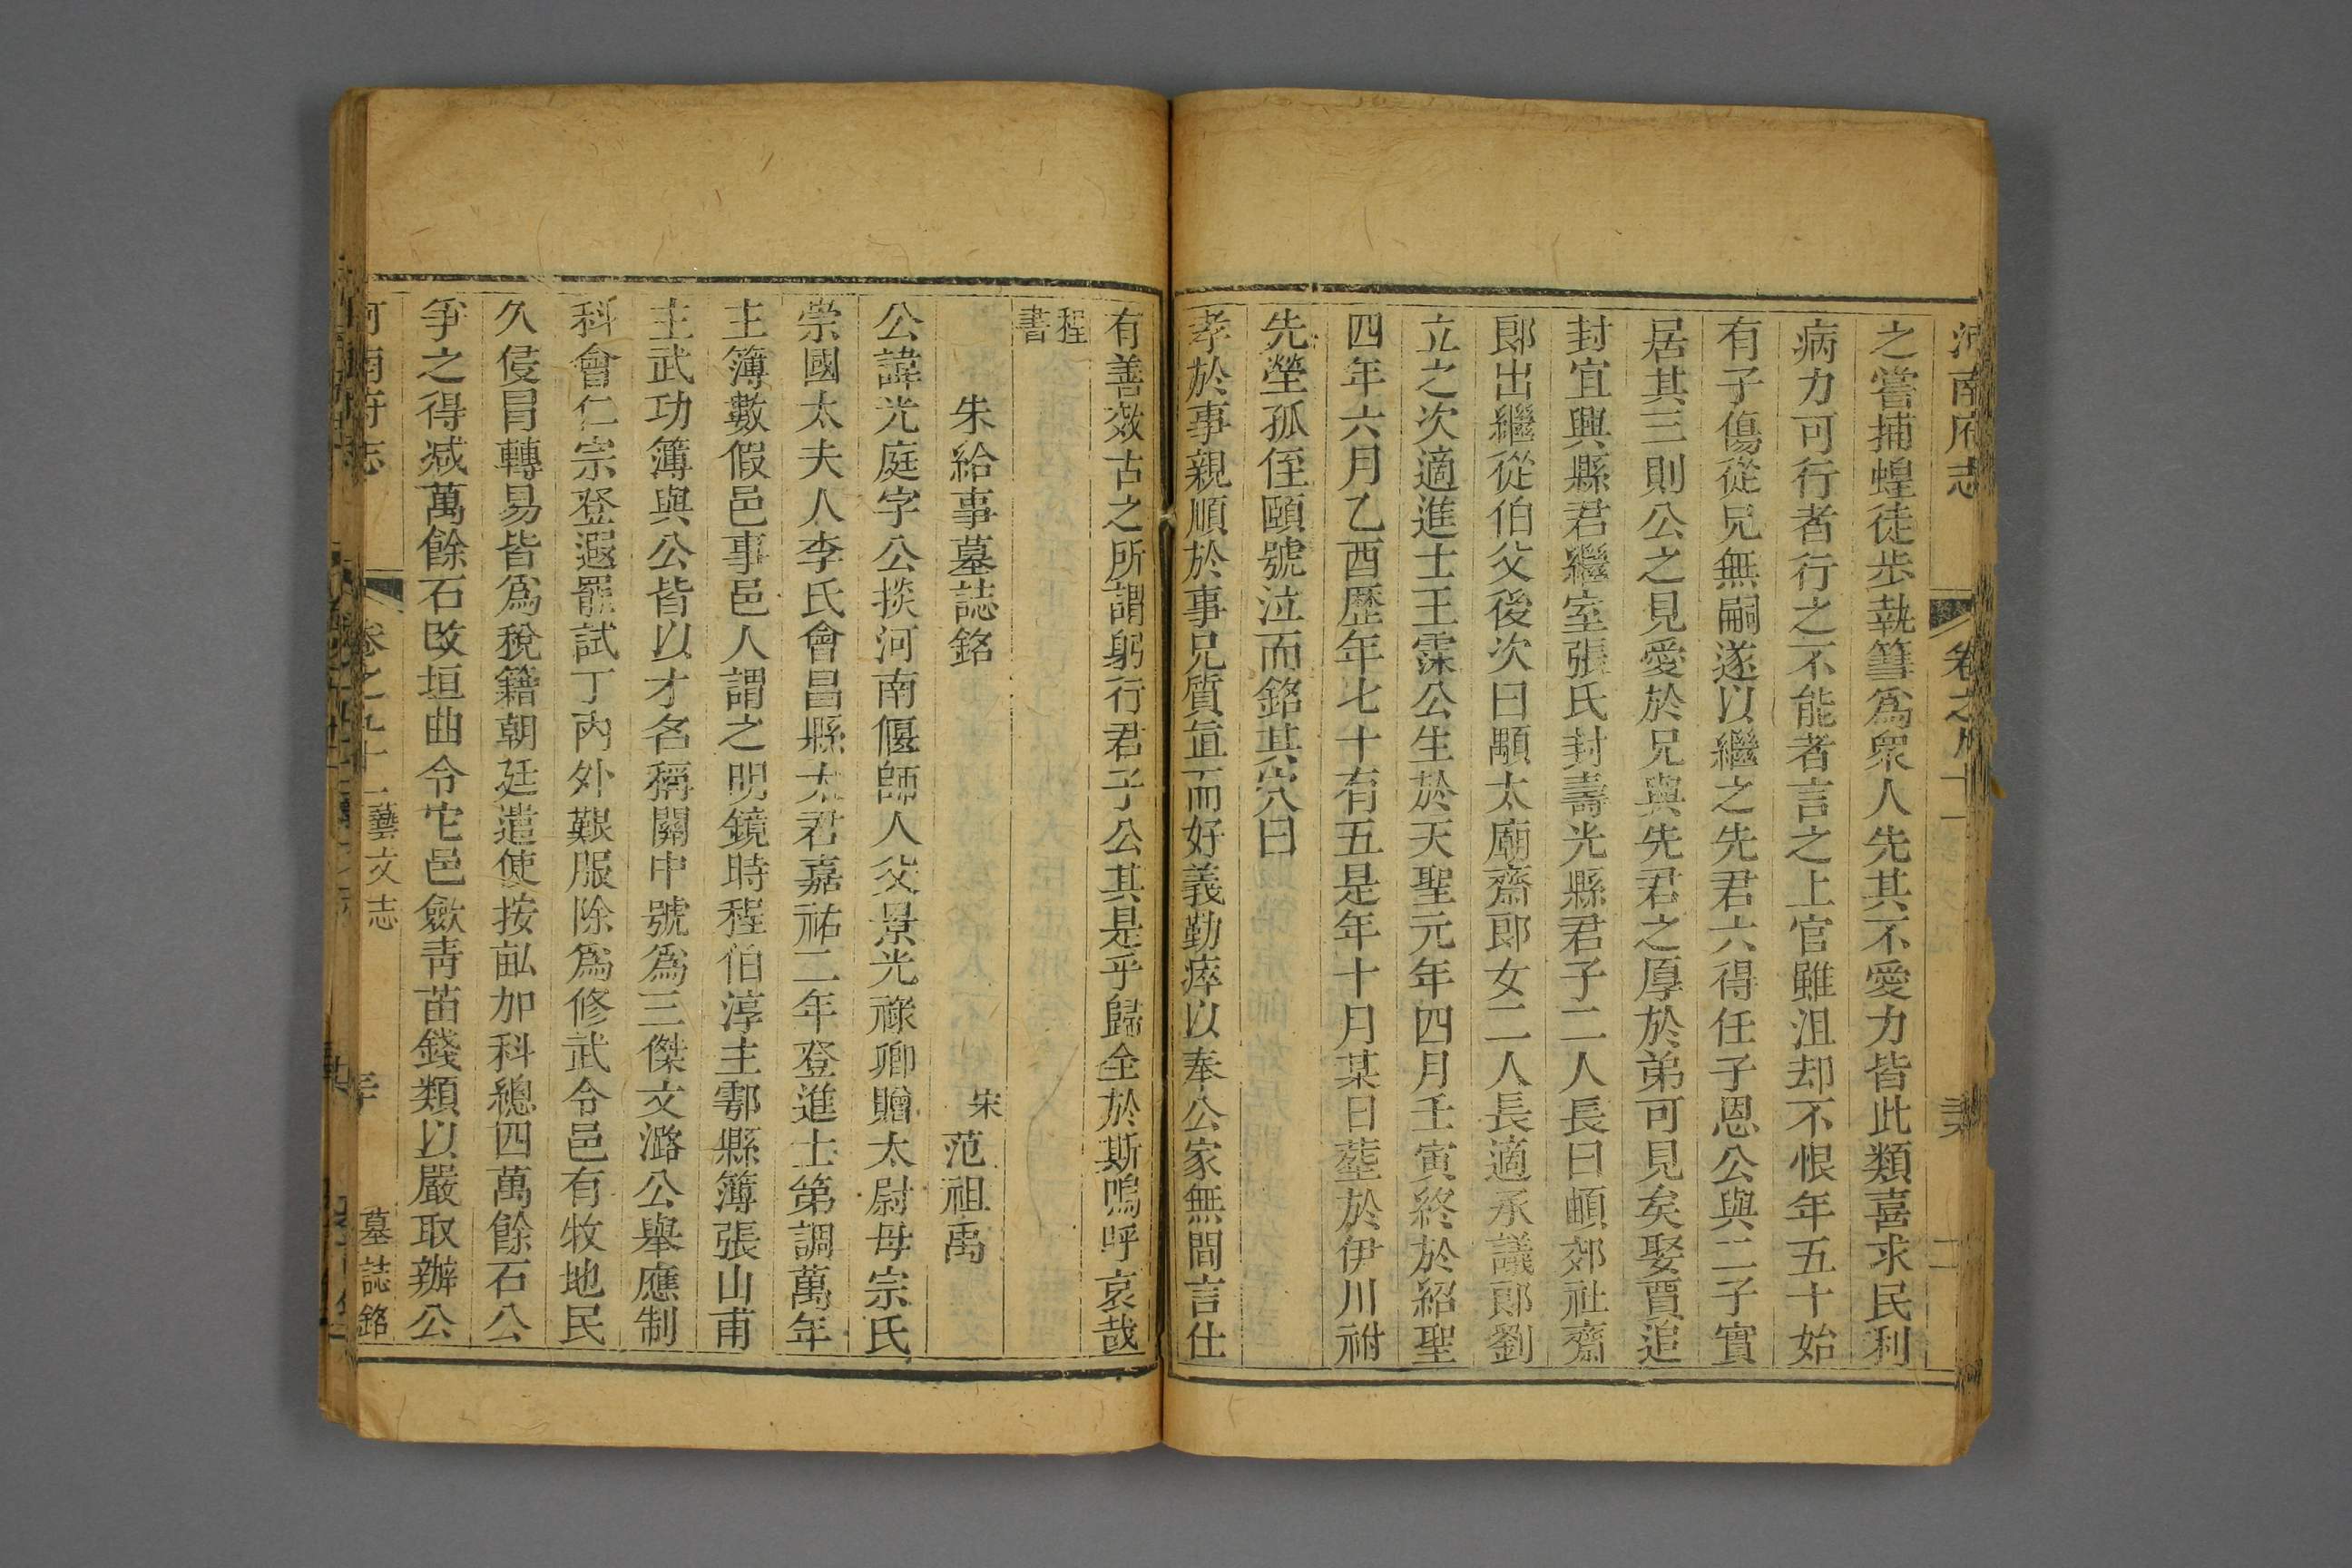 河南府志 卷之九十一
之嘗捕蝗徒步執篲爲衆人先其不愛力皆此類喜求民利
病力可行者行之不能者言之上官雖沮却不恨年五十始
有子傷從兄無嗣遂以繼之先君六得任子恩公與二子實
居其三則公之見愛於兄與先君之厚於弟可見矣娶賈追
封宜興縣君繼室張氏封壽光縣君子二人長曰䪼郊社齋
郎出繼從伯父後次曰顒太廟齋郎女二人長適承議郎劉
立之次適進士王霂公生於天聖元年四月壬寅終於紹聖
四年六月乙酉歷年七十有五是年十月某日塟於伊川祔
先塋孤侄頤號泣而銘其穴曰
孝於事親順於事兄質直而好義勤瘁以奉公家無間言仕
有善效古之所謂躬行君子公其是乎歸全於斯嗚呼哀哉
程
書
朱給事墓誌銘 宋 范祖禹
公諱光庭字公掞河南偃師人父景光祿卿贈太尉母宗氏
崇國太夫人李氏會昌縣太君嘉祐二年登進士第調萬年
主簿數假邑事邑人謂之明鏡時程伯淳主鄠縣簿張山甫
主武功簿與公皆以才名稱關中號爲三傑文潞公舉應制
科會仁宗登遐罷試丁內外艱服除爲修武令邑有牧地民
久侵冒轉易皆爲稅籍朝廷遣使按畝加科總四萬餘石公
爭之得减萬餘石改垣曲令它邑斂靑苗錢類以嚴取辦公
河南府志 卷之九十一 藝文志 墓誌銘